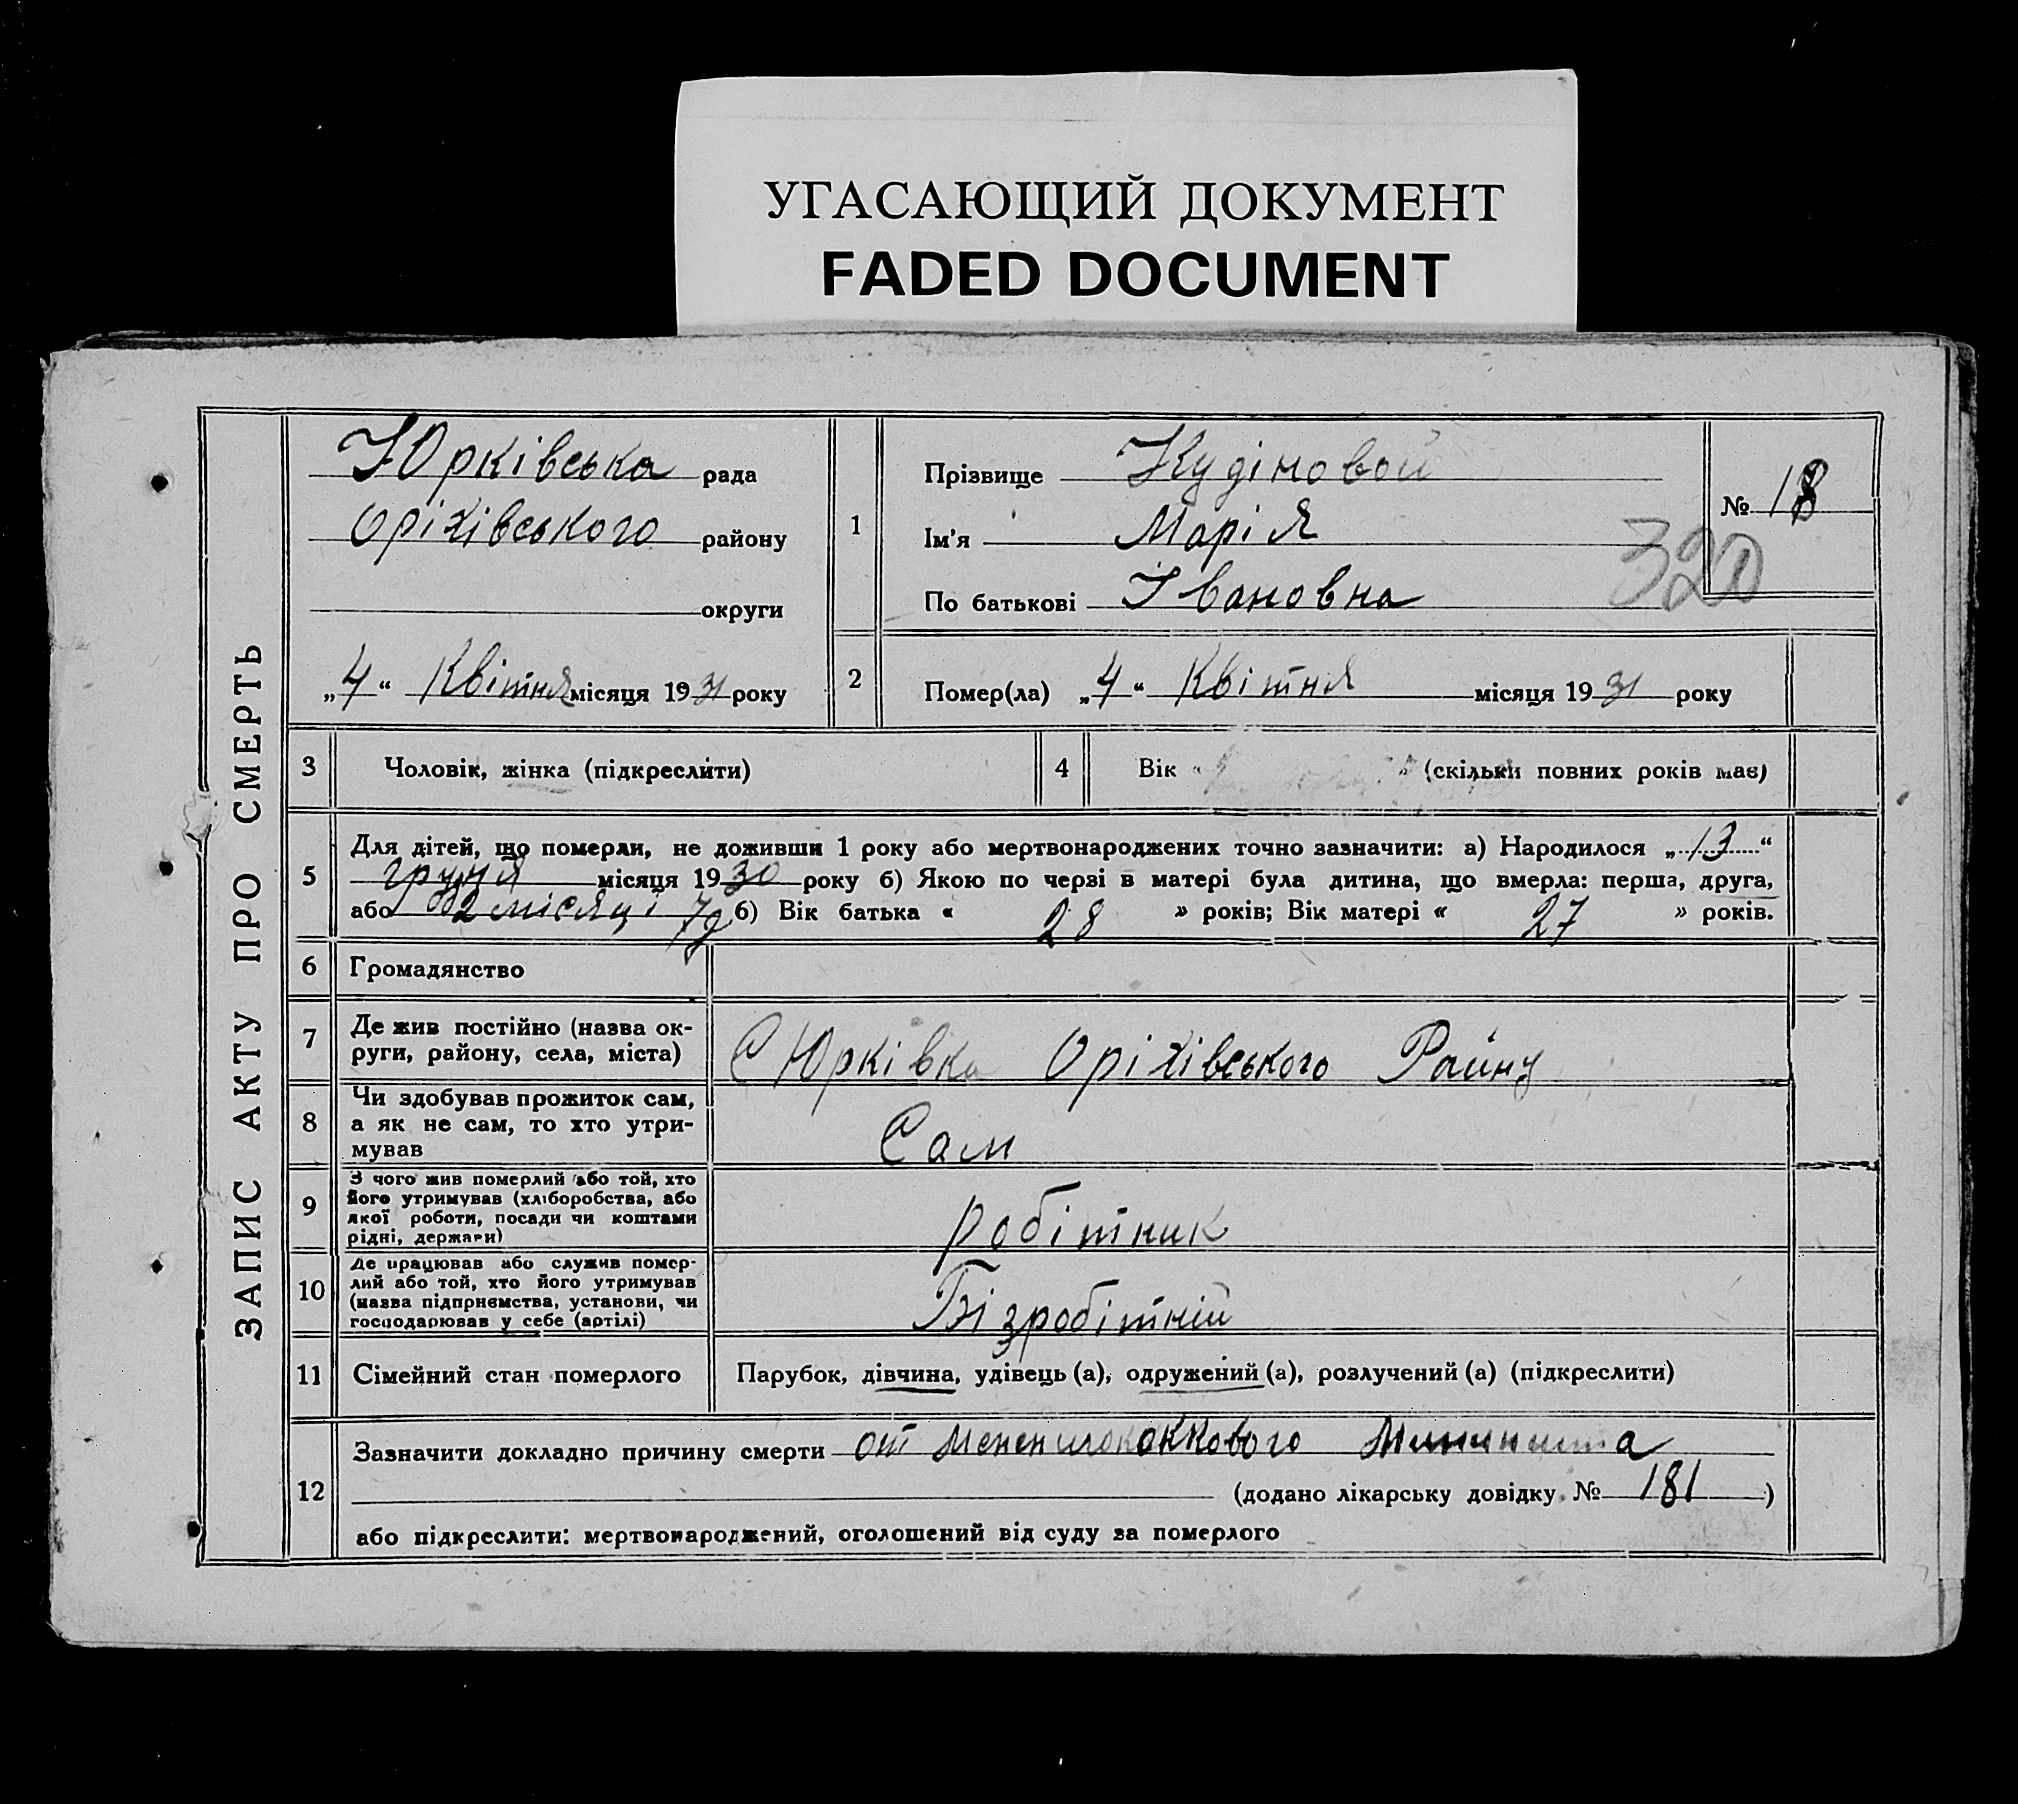 УГАСАЮЩИЙ ДОКУМЕНТ
FADED DOCUMENT
ЗАПИС АКТУ ПРО СМЕРТЬ
Юрківська рада
Оріхівського району
округи
„4“ Квітня місяця 1931 року
1
Прізвище Кудіновой
Ім'я Марія
По батькові Івановна
№ 18
320
2
Помер(ла) „4“ Квітня місяця 1931 року
3 Чоловік, жінка (підкреслити)
4 Вік « » (скільки повних років має)
5 Для дітей, що померли, не доживши 1 року або мертвонароджених точно зазначити: а) Народилося „13“
грудня місяця 1930 року б) Якою по черзі в матері була дитина, що вмерла: перша, друга,
або місяці б) Вік батька « 28 » років; Вік матері « 27 » років.
6 Громадянство
7 Де жив постійно (назва ок-
руги, району, села, міста)
С Юрківка Оріхівського Району
8 Чи здобував прожиток сам,
а як не сам, то хто утри-
мував
Сам
9 З чого жив померлий або той, хто
його утримував (хліборобства, або
якої роботи, посади чи коштами
рідні, держави)
робітник
10 Де працював або служив помер-
лий або той, хто його утримував
(назва підприємства, установи, чи
господарював у себе (артілі)
Бізробітній
11 Сімейний стан померлого
Парубок, дівчина, удівець (а), одружений (а), розлучений (а) (підкреслити)
12
Зазначити докладно причину смерти от
(додано лікарську довідку № 181)
або підкреслити: мертвонароджений, оголошений від суду за померлого